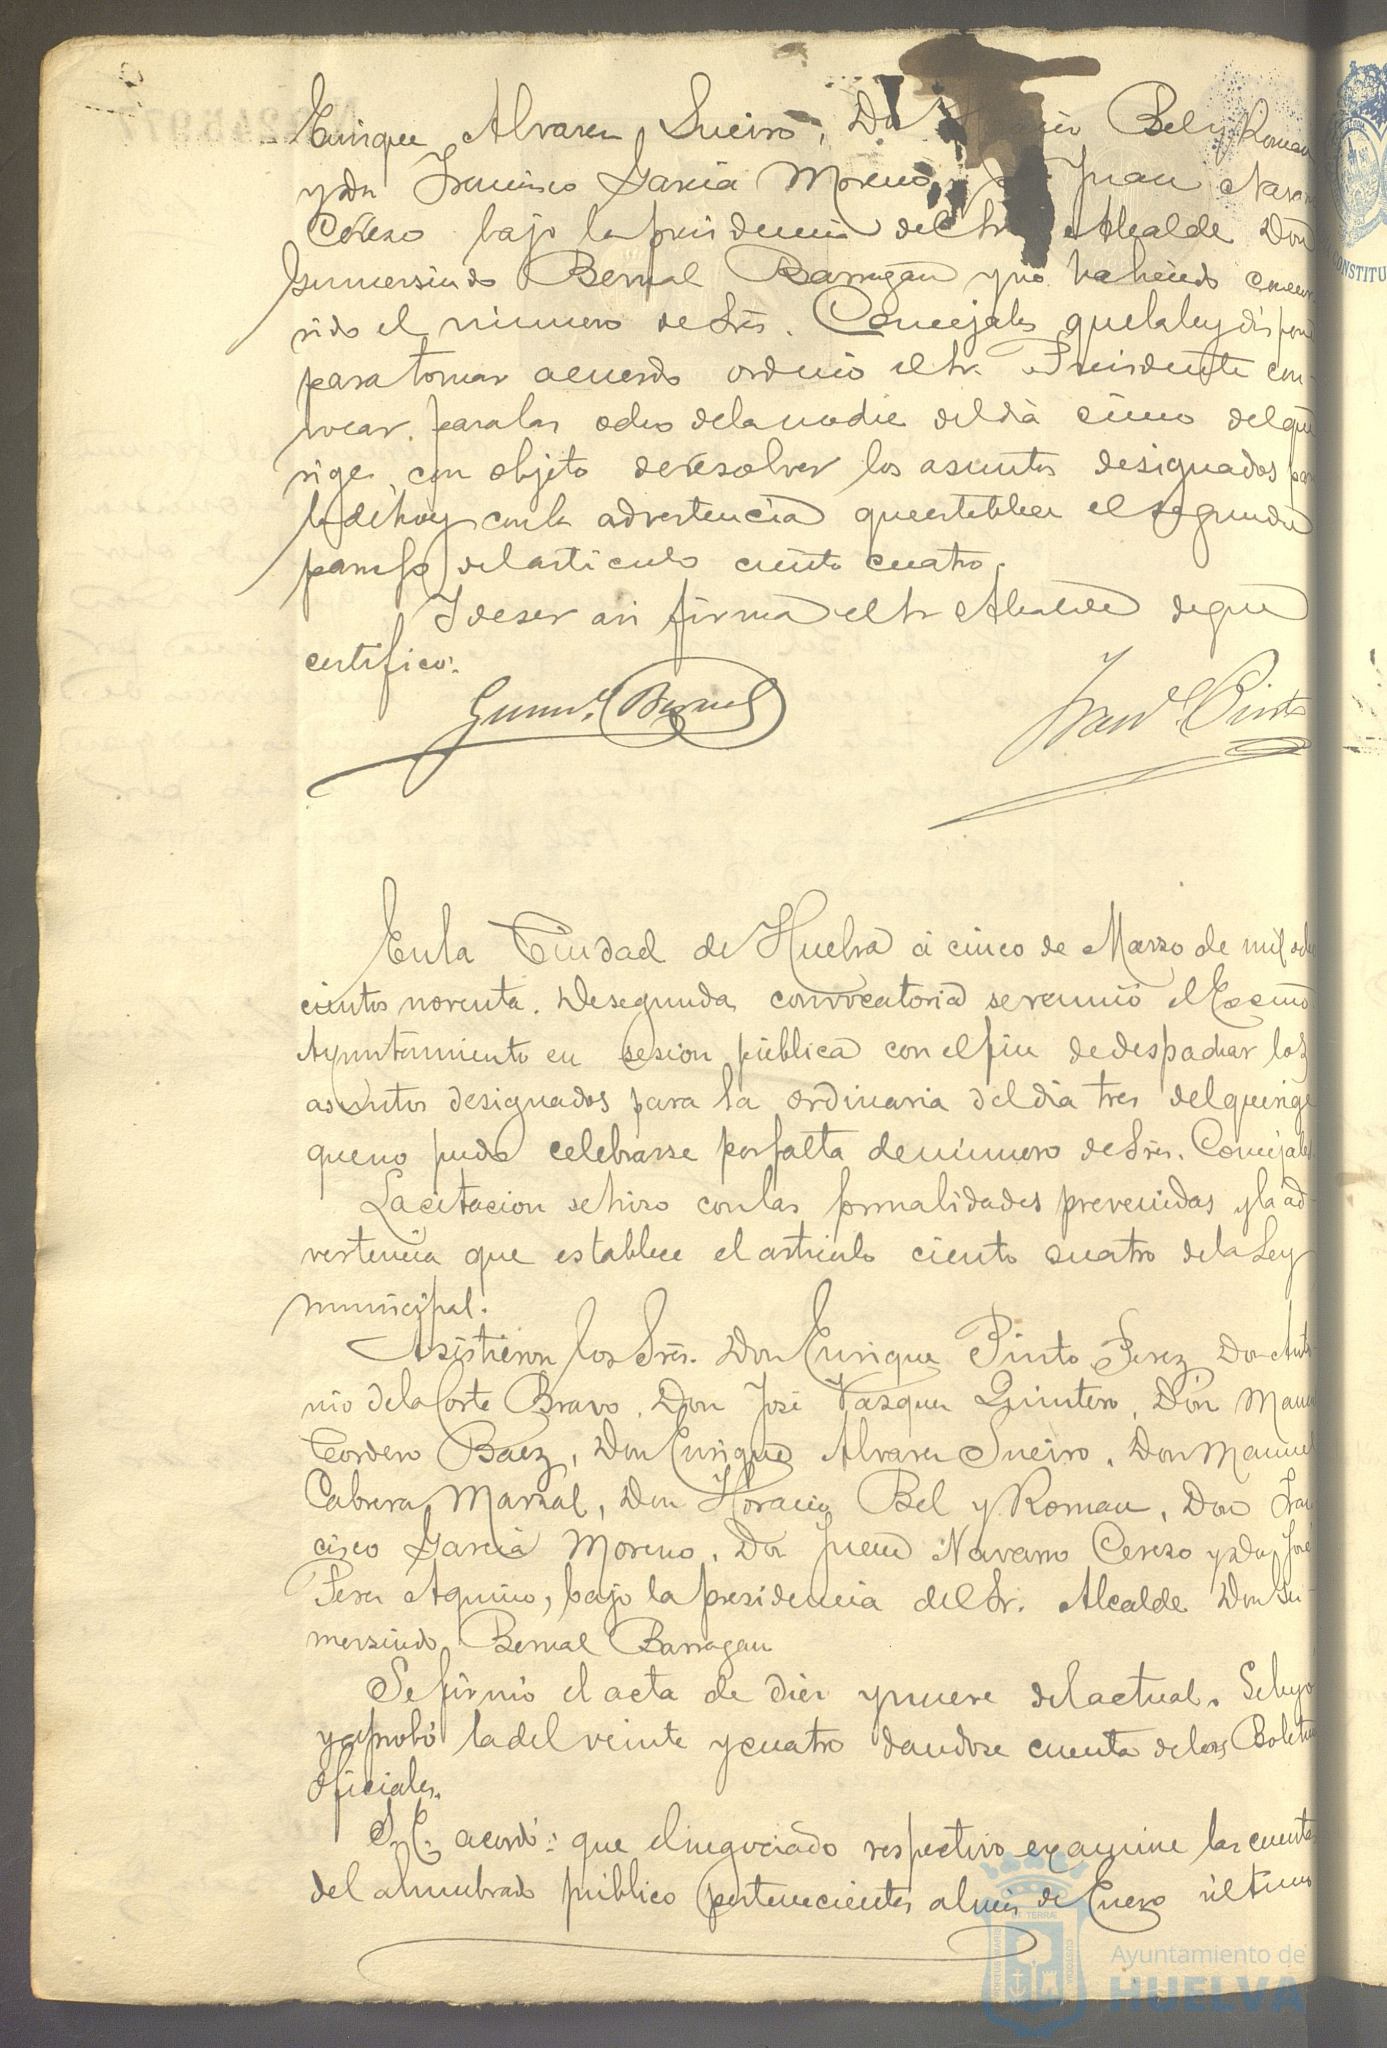 Enrique Alvarez Sueiro, Don Bel y Roman
y don Francisco Garcia Moreno, Juan
Cerezo bajo la presidencia del Sr Alcalde Don
Gumersindo Bernal Barragan y no habiendo concur-
rido el número de Srs. Concejales que la ley dispone
para tomar acuerdo ordenó el Sr. Presidente con-
vocar para las ocho de la noche del dia cinco del que
rige, con objeto de resolver los asuntos designados para
la de hoy con la advertencia que establece el segundo
parrafo del articulo ciento cuatro.
Y de ser asi firma el Sr Alcalde de que
certifico.
Gumdo. Bernal
Franco. Pinto
En la Ciudad de Huelva á cinco de Marzo de mil ocho
cientos noventa. De segunda convocatoria se reunió el Excmo
Ayuntamiento en sesion pública con el fin de despachar los
asuntos designados para la ordinaria del dia tres del que rige
que no pudo celebrarse por falta de número de Srs. Concejales.
La citacion se hizo con las formalidades prevenidas y la ad
vertencia que establece el articulo ciento cuatro de la Ley
municipal.
Asistieron los Srs. Don Enrique Pinto Perez Don Anto-
nio de la Corte Bravo, Don José Vazquez Quintero, Don Manuel
Cordero Baez, Don Enrique Alvarez Sueiro, Don Manuel
Cabrera Marzal, Don Horacio Bel y Roman, Don Fran
cisco Garcia Moreno, Don Juan Navarro Cerezo y don José
Perez Aquino, bajo la presidencia del Sr. Alcalde Don Gu-
mersindo Bernal Barragan
Se firmó el acta de diez y nueve del actual. Se leyó
y aprobó la del veinte y cuatro dandose cuenta de los Boletines
oficiales.
S. E. acordó: que el negociado respectivo examine las cuentas
del alumbrado público pertenecientes al mes de Enero último
Ayuntamiento de
HUELVA